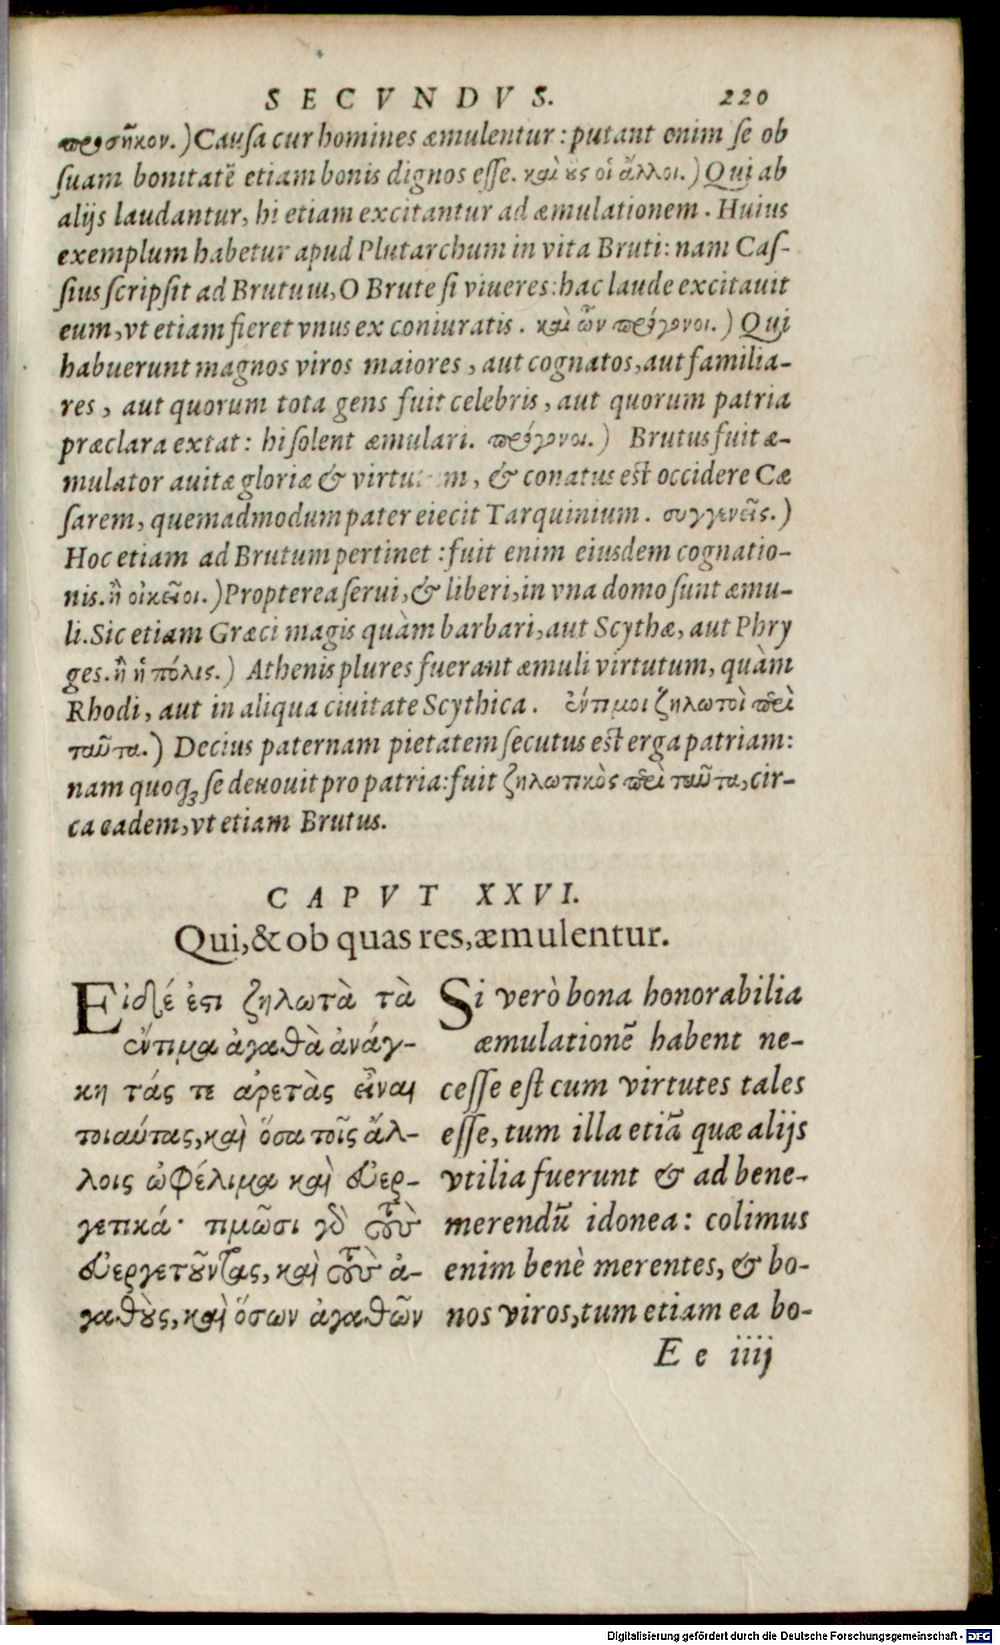 SECVNDVS. 220
προσῆκον.) Causa cur homines æmulentur: putant enim se ob
suam bonitatē etiam bonis dignos esse. καὶ ὓς οἱ ἄλλοι.) Qui ab
alijs laudantur, hi etiam excitantur ad æmulationem. Huius
exemplum habetur apud Plutarchum in vita Bruti: nam Cas-
sius scripsit ad Brutum, O Brute si viueres: hac laude excitauit
eum, vt etiam fieret vnus ex coniuratis. καὶ ὧν πρόγονοι.) Qui
habuerunt magnos viros maiores, aut cognatos, aut familia-
res, aut quorum tota gens fuit celebris, aut quorum patria
præclara extat: hi solent æmulari. πρόγονοι.) Brutus fuit æ-
mulator auitæ gloriæ & virtu m, & conatus est occidere Cæ
sarem, quemadmodum pater eiecit Tarquinium. συγγενεῖς.)
Hoc etiam ad Brutum pertinet: fuit enim eiusdem cognatio-
nis. ἢ οἰκεῖοι.) Propterea serui, & liberi, in vna domo sunt æmu-
li. Sic etiam Græci magis quàm barbari, aut Scythæ, aut Phry
ges. ἢ ἡ πόλις.) Athenis plures fuerant æmuli virtutum, quàm
Rhodi, aut in aliqua ciuitate Scythica. ἔντιμοι ζηλωτοὶ περὶ
ταῦτα.) Decius paternam pietatem secutus est erga patriam:
nam quoq; se deuouit pro patria: fuit ζηλωτικὸς περὶ ταῦτα, cir-
ca eadem, vt etiam Brutus.
CAPVT XXVI.
Qui, & ob quas res, æmulentur.
Εἰ δέ ἐστι ζηλωτὰ τὰ
ἔντιμα ἀγαθὰ ἀνάγ-
κη τάς τε ἀρετὰς εἶναι
τοιαύτας, καὶ ὅσα τοῖς ἄλ-
λοις ὠφέλιμα καὶ εὐερ-
γετικά· τιμῶσι γὸ τοὺς
εὐεργετοῦντας, καὶ τοὺς ἀ-
γαθοὺς, καὶ ὅσων ἀγαθῶν
Si verò bona honorabilia
æmulationē habent ne-
cesse est cum virtutes tales
esse, tum illa etiā quæ alijs
vtilia fuerunt & ad bene-
merendū idonea: colimus
enim benè merentes, & bo-
nos viros, tum etiam ea bo-
E e iiij
Digitalisierung gefördert durch die Deutsche Forschungsgemeinschaft - DFG